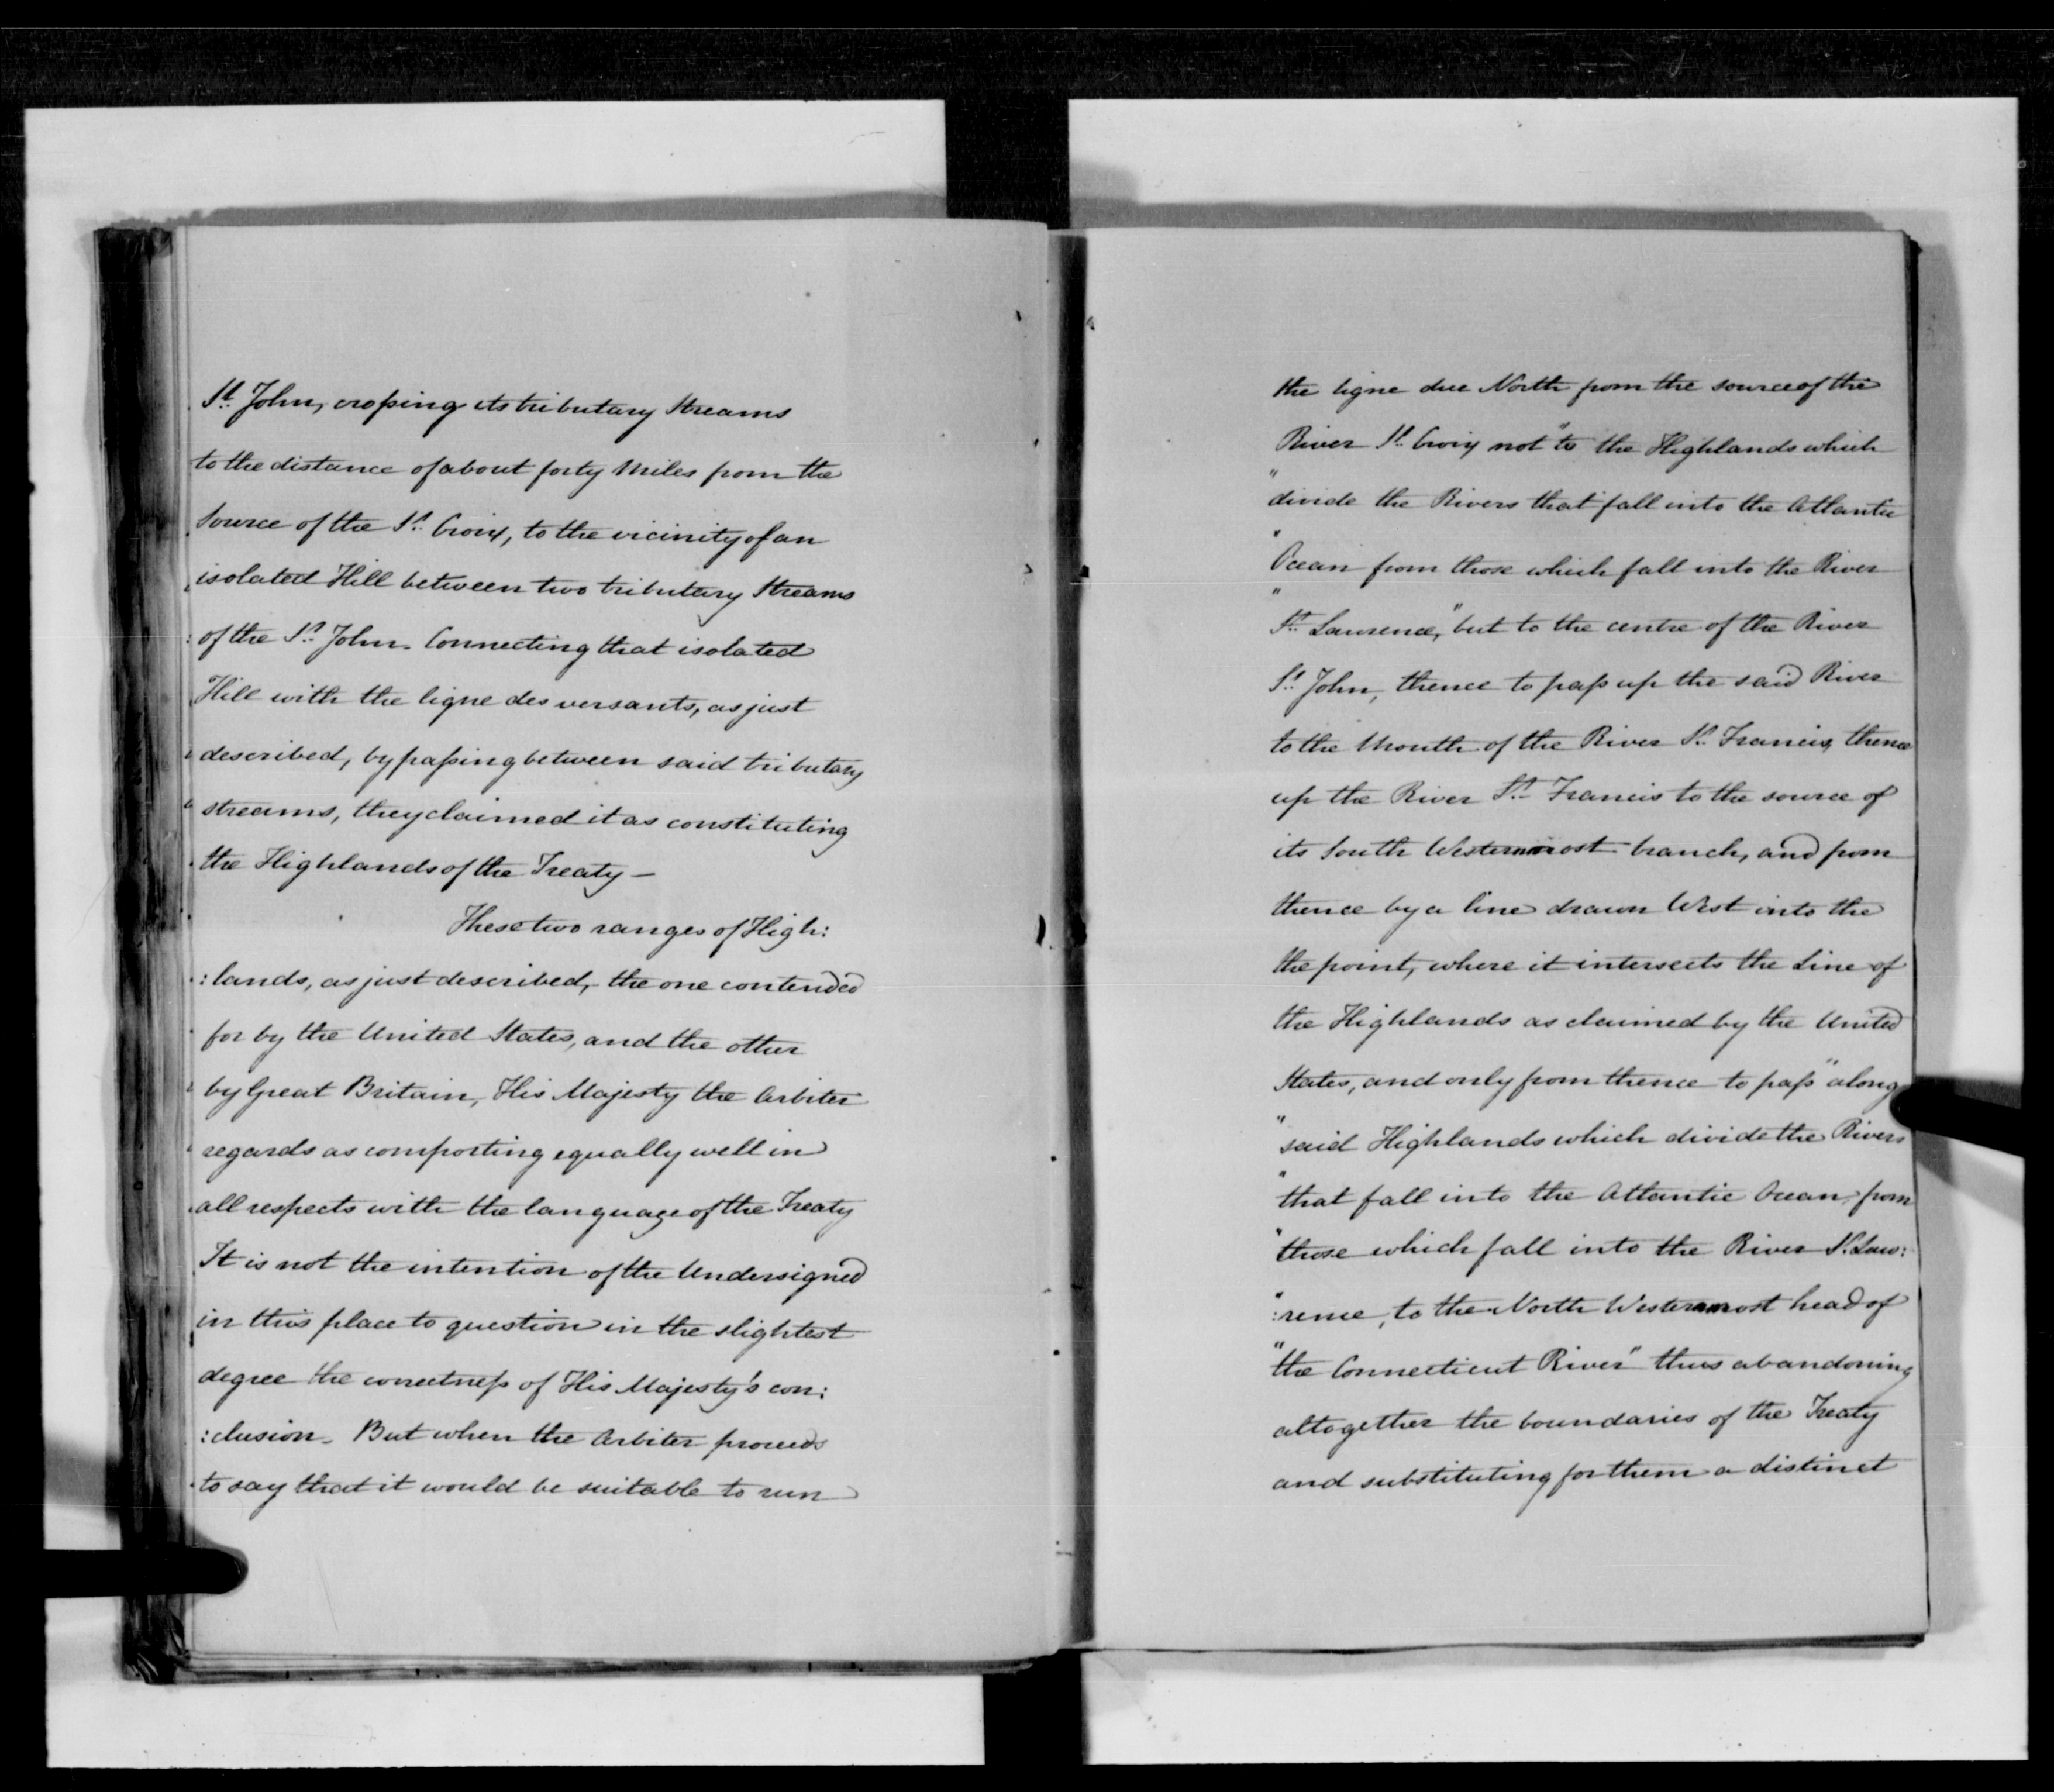 St. John, crossing its tributary Streams
to the distance of about forty Miles from the
Source of the St. Croix, to the vicinity of an
isolated Hill between two tributary Streams
of the St. John. Connecting that isolated
Hill with the ligne des versants, as just
described, by passing between said tributary
streams, they claimed it as constituting
the Highlands of the Treaty —
These two ranges of High:
:lands, as just described, the one contended
for by the United States, and the other
by Great Britain, His Majesty the Arbiter
regards as comporting equally well in
all respects with the language of the Treaty
It is not the intention of the Undersigned
in this place to question in the slightest
degree the correctness of His Majesty's con:
:clusion. But when the Arbiter proceeds
to say that it would be suitable to run
the ligne due North from the source of the
River St. Croix not "to the Highlands which
"divide the Rivers that fall into the Atlantic
"Ocean from those which fall into the River
"St. Lawrence," but to the centre of the River
St. John, thence to pass up the said River
to the Mouth of the River St. Francis, thence
up the River St. Francis to the source of
its South Westernmost branch, and from
thence by a line drawn West into the
the point, where it intersects the Line of
the Highlands as claimed by the United
States, and only from thence to pass "along
"said Highlands which divide the Rivers
"that fall into the Atlantic Ocean, from
"those which fall into the River St. Law:
":rence, to the North Westernmost head of
"the Connecticut River" thus abandoning
altogether the boundaries of the Treaty
and substituting for them a distinct